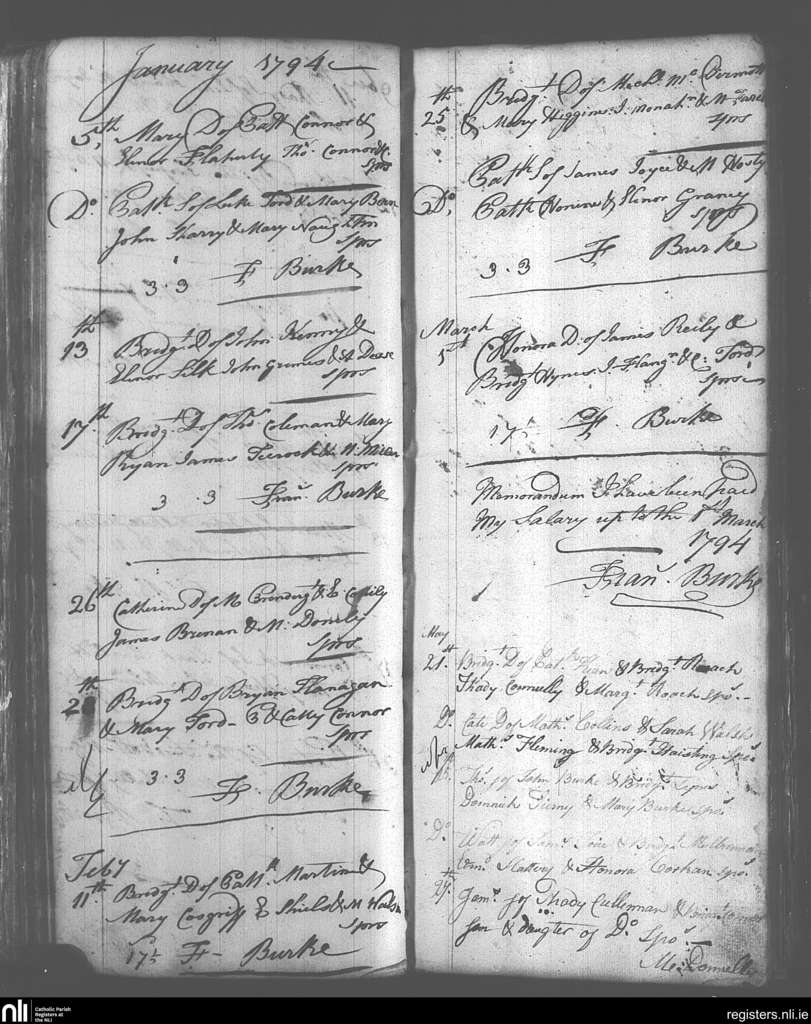 January 1794
5th Mary D of Patt Connor &
Elinor Flaherty Thos. Connor &c
Sprs
Do. Patk. S of Luke Ford & Mary Bean
John Harry & Mary Naughton
Sprs
3 . 3 F Burke
13th Bridgt. D of John Kenny &
Elinor Silk John Grimes & A Deane
Sprs
17th Bridgt. D of Thos. Coleman & Mary
Ryan James &
Sprs
3 . 3 Fran. Burke
26th Catherine D of M &
James Brenan & M. Donely
Sprs
28th Bridgt. D of Bryan Flanagan
& Mary Ford & Catty Connor
Sprs
3 . 3 F. Burke
Feby
11th Bridgt. D of Patk. Martin &
Mary Cosgriff E Shiels & M Walsh
Sprs
17th F- Burke
25th Bridgt. D of Michl. Mc Dermott
& Mary Higgins J. Monahn. & M
Sprs
Do. Patk. S of James Joyce & M Hosty
Patk & Elinor Graney
Sprs
3 . 3 F Burke
March
5th Honora D. of James Reily &
Bridgt. Hynes J. Flangn. & C: Ford
Sprs
17th F. Burke
Memorandum I have been paid
My Salary up to the 1st March
1794
Fran. Burke
May
21st Bridgt. D of Patk. & Bridgt. Roach
Thady Connelly & Margt. Roach Sprs.
Do. Cate D of Maths. Collins & Sarah Walsh
Maths. Fleming & Bridgt. Sprs
Thos. of John Burke & Bridgt.
Dominick & Mary Burke Sprs
Do. Watt of & Bridgt.
Slattery & Honora Corhan Sprs.
27th Jams. of Thady Cullenan &
Son & daughter of Do. Sprs.
Mc: Donnell
nli
Catholic Parish
Registers at
the NLI
registers.nli.ie